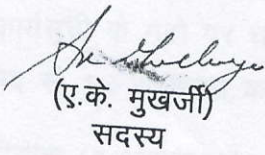 (ए.के. मुखर्जी)
सदस्य